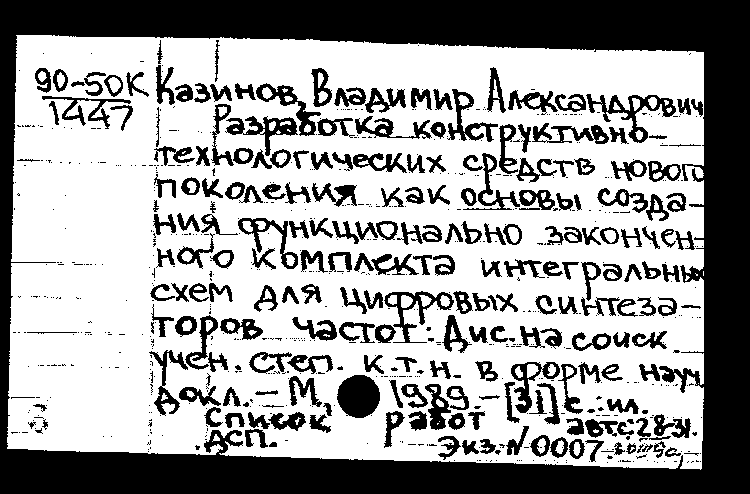 90-50К
1447
Казинов, Владимир Александрович
Разработка конструктивно-
технологических средств нового
поколения как основы созда-
ния функционально закончен-
ного комплекта интегральных
схем для цифровых синтеза-
торов частот: Дис. на соиск.
учен. степ. к.т.н. в форме науч.
докл. – М., 1989. – [31] с.: ил.
список работ авт. с. 28-31.
ДСП. Экз. N 0007.